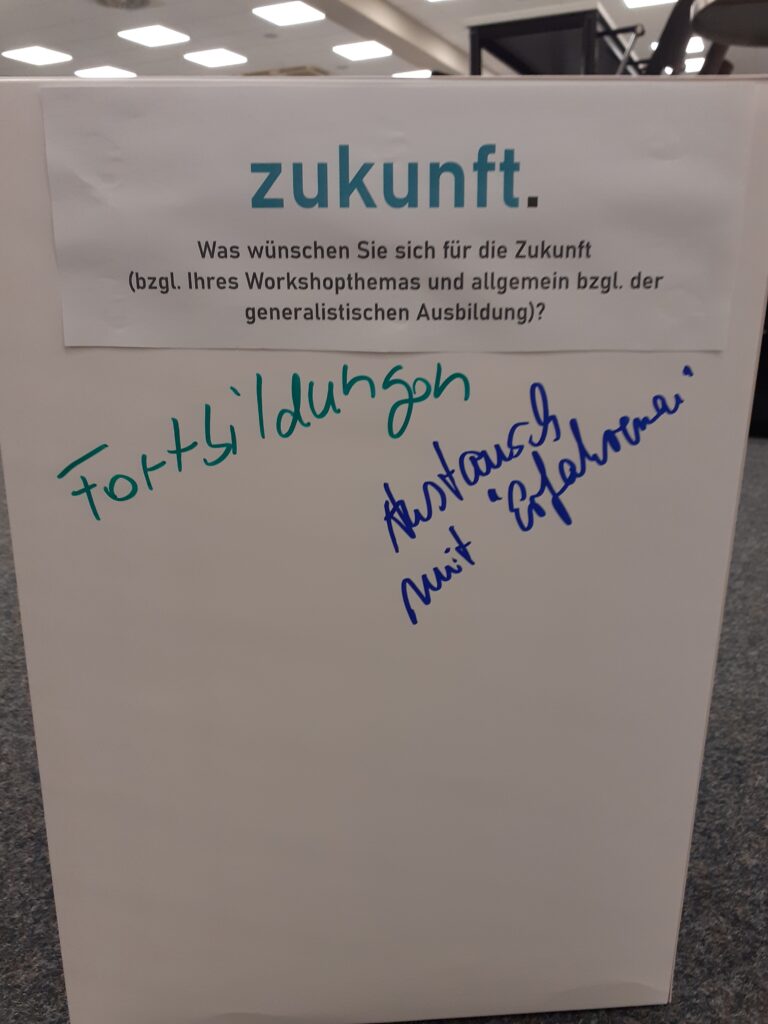 zukunft.
Was wünschen Sie sich für die Zukunft
(bzgl. Ihres Workshopthemas und allgemein bzgl. der
generalistischen Ausbildung)?
Fortbildungen
Austausch
mit "Erfahrenen"